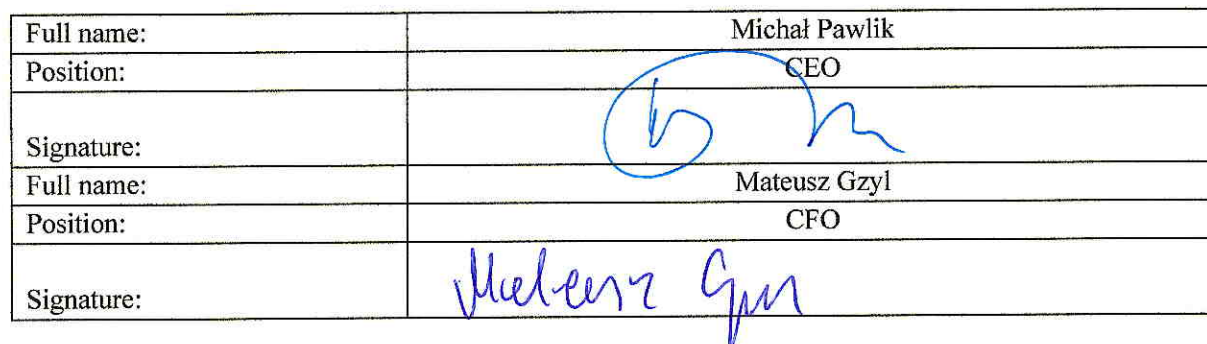 Full name: Michał Pawlik
Position: CEO
Signature:
Full name: Mateusz Gzyl
Position: CFO
Signature: Mateusz